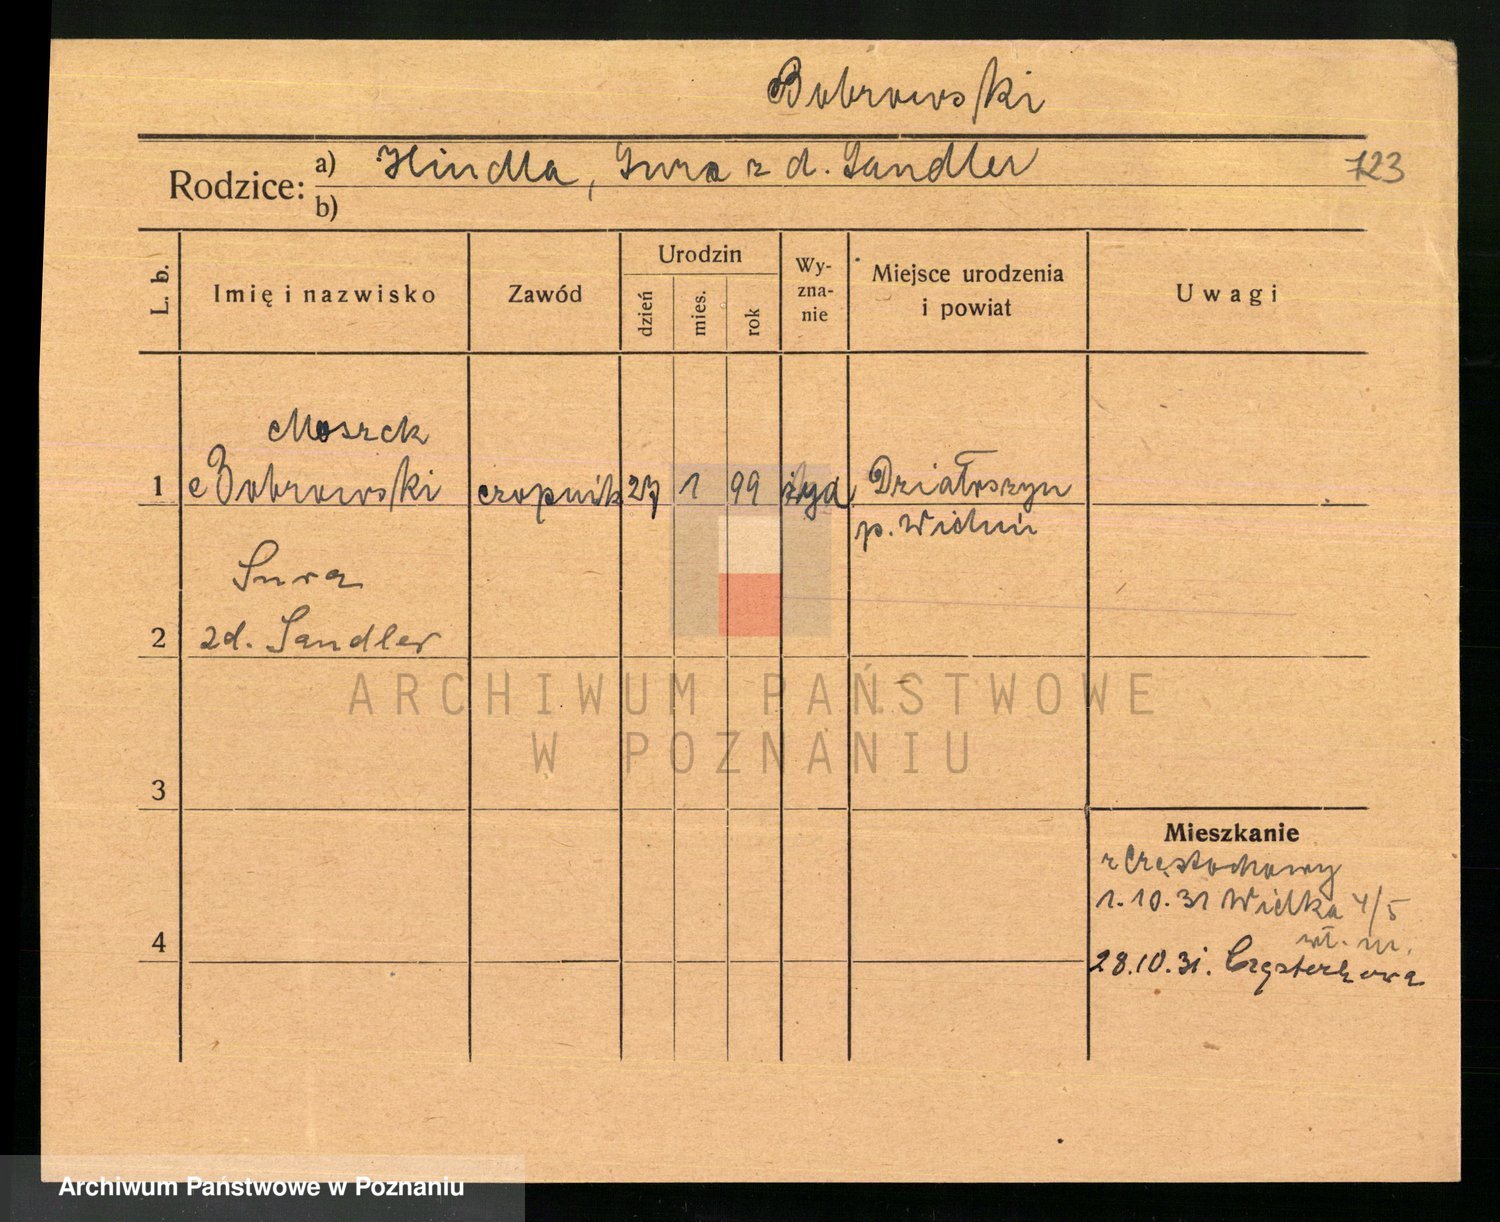 Bobrowski
Rodzice: a) Hindla, Sura z d. Sandler
b)
723
L. b.
Imię i nazwisko
Zawód
Urodzin
dzień
mies.
rok
Wy-
zna-
nie
Miejsce urodzenia
i powiat
Uwagi
Moszek
1 Bobrowski czapnik 27 1 99 żyd Działoszyn
p. Wieluń
Sura
2 zd. Sandler
ARCHIWUM PAŃSTWOWE
W POZNANIU
3
Mieszkanie
z Częstochowy
1.10.31 Wielka 4/5
wł. m.
4
28.10.31. Częstochowa
Archiwum Państwowe w Poznaniu